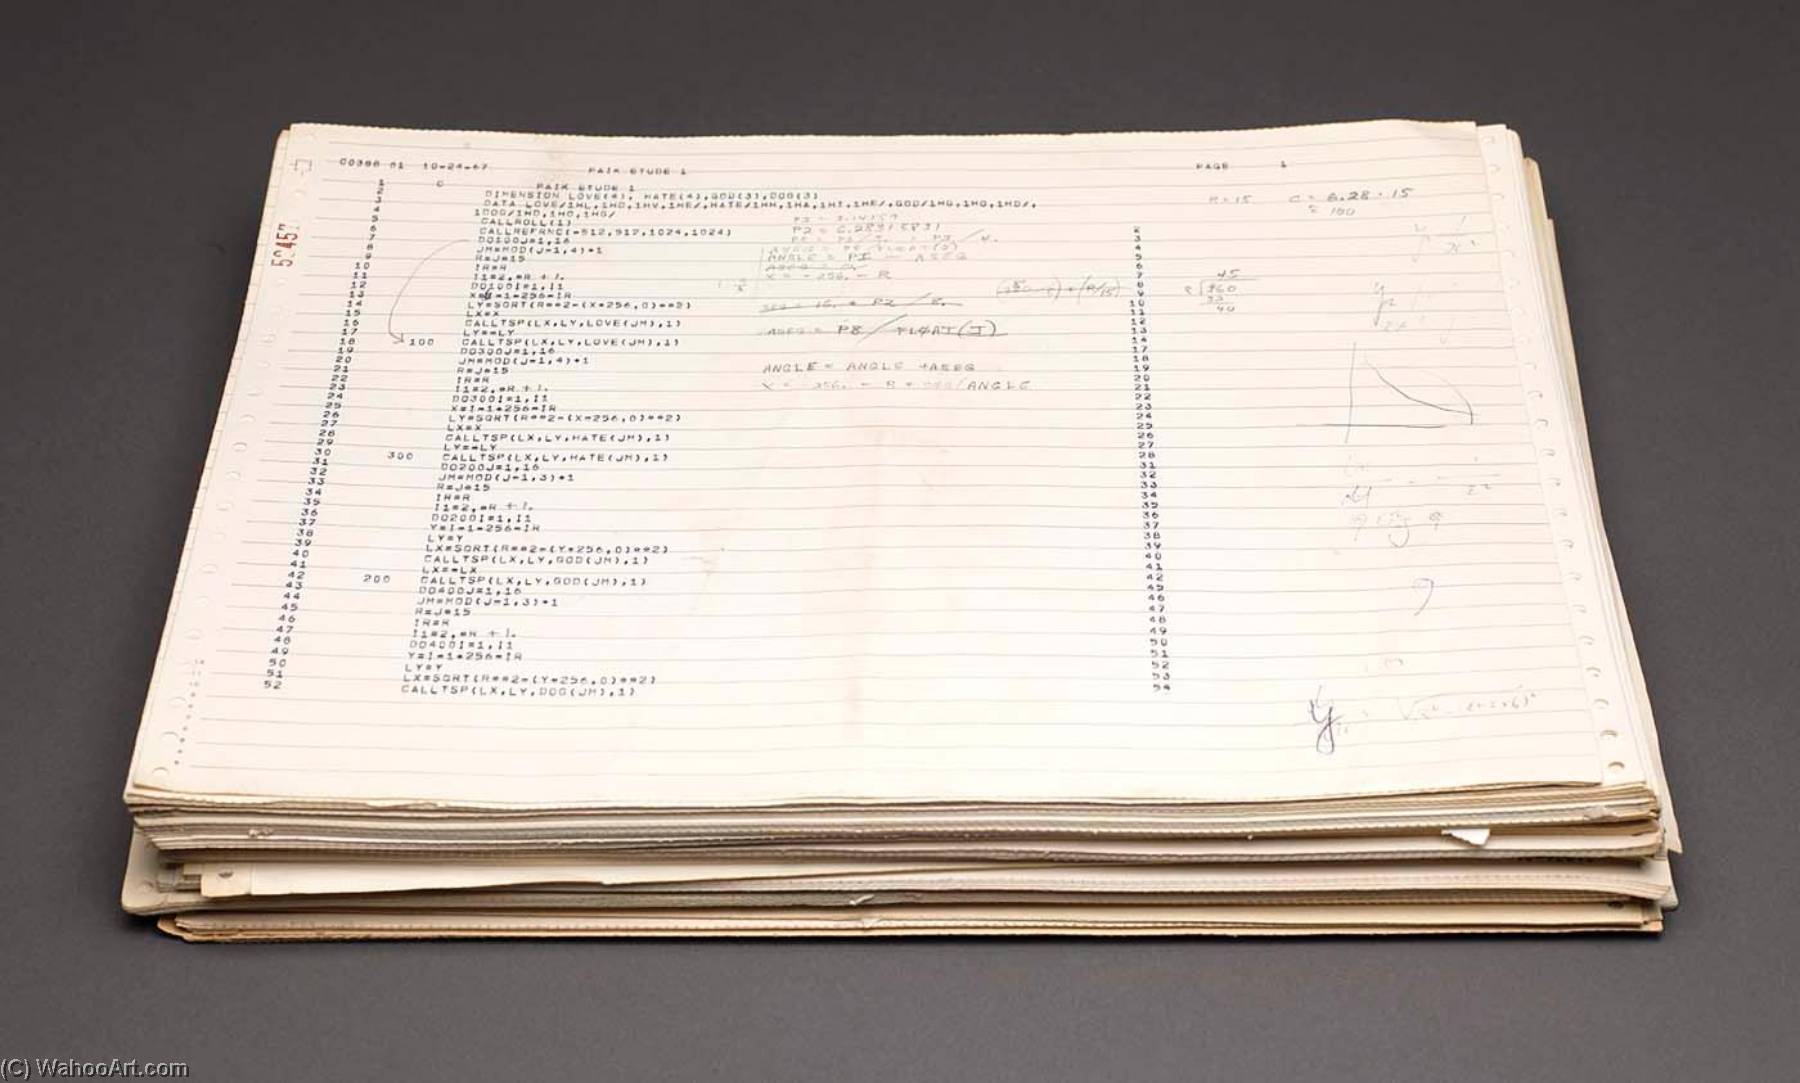 C0388 01 10-24-67 PAIK ETUDE 1 PAGE 1
1 C PAIK ETUDE 1
2 DIMENSION LOVE(4), HATE(4),GOD(3),DOG(3)
3 DATA LOVE/1HL,1HO,1HV,1HE/,HATE/1HH,1HA,1HT,1HE/,GOD/1HG,1HO,1HD/,
4 1DOG/1HD,1HO,1HG/
5 CALLROLL(1)
6 CALLREFRNC(-512,512,1024,1024) 2
7 DO100J=1,16 3
8 JM=MOD(J-1,4)+1 4
9 R=J*15 5
10 IR=R 6
11 I1=2.*R + 1. 7
12 DO100I=1,I1 8
13 X=I-1-256-IR 9
14 LY=SQRT(R**2-(X+256.0)**2) 10
15 LX=X 11
16 CALLTSP(LX,LY,LOVE(JM),1) 12
17 LY=-LY 13
18 100 CALLTSP(LX,LY,LOVE(JM),1) 14
19 DO300J=1,16 17
20 JM=MOD(J-1,4)+1 18
21 R=J*15 19
22 IR=R 20
23 I1=2.*R + 1. 21
24 DO300I=1,I1 22
25 X=I-1+256-IR 23
26 LY=SQRT(R**2-(X-256.0)**2) 24
27 LX=X 25
28 CALLTSP(LX,LY,HATE(JM),1) 26
29 LY=-LY 27
30 300 CALLTSP(LX,LY,HATE(JM),1) 28
31 DO200J=1,16 31
32 JM=MOD(J-1,3)+1 32
33 R=J*15 33
34 IR=R 34
35 I1=2.*R + 1. 35
36 DO200I=1,I1 36
37 Y=I-1-256-IR 37
38 LY=Y 38
39 LX=SQRT(R**2-(Y+256.0)**2) 39
40 CALLTSP(LX,LY,GOD(JM),1) 40
41 LX=-LX 41
42 200 CALLTSP(LX,LY,GOD(JM),1) 42
43 DO400J=1,16 45
44 JM=MOD(J-1,3)+1 46
45 R=J*15 47
46 IR=R 48
47 I1=2.*R + 1. 49
48 DO400I=1,I1 50
49 Y=I-1+256-IR 51
50 LY=Y 52
51 LX=SQRT(R**2-(Y-256.0)**2) 53
52 CALLTSP(LX,LY,DOG(JM),1) 54
52457
PI = 3.14159
ANGLE = PI - ASEG
X = -256. - R
ASEG = P8/FLOAT(J)
ANGLE = ANGLE + ASEG
R=15 C = 6.28 · 15
≈ 100
45
8 360
32
40
(C) WahooArt.com